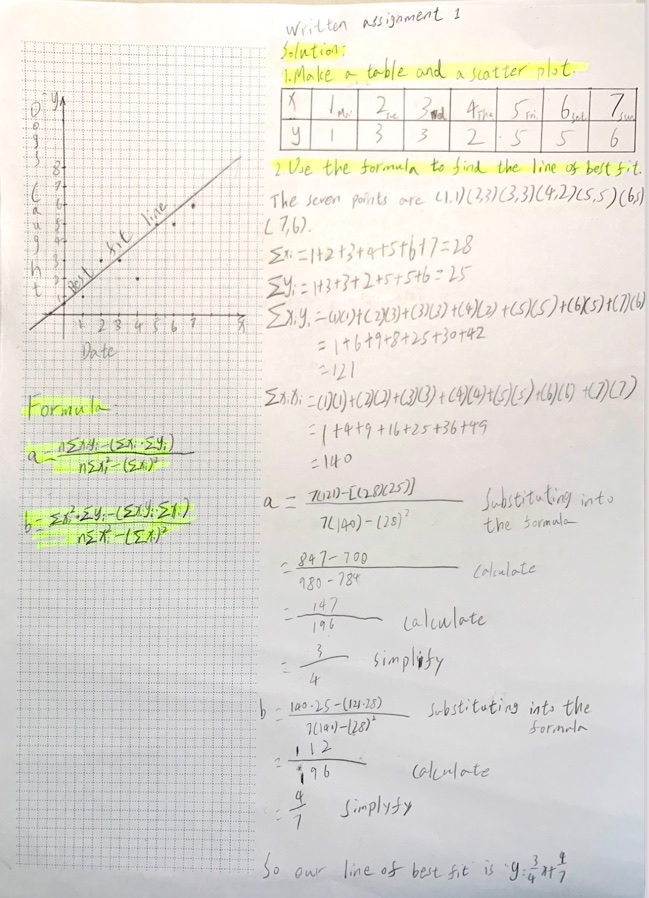 Written assignment 1
Solution:
1. Make a table and a scatter plot.
X 1 Mo 2 Tue 3 Wed 4 Thu 5 Fri 6 Sat 7 Sun
y 1 3 3 2 5 5 6
2. Use the formula to find the line of best fit.
The seven points are (1,1)(2,3)(3,3)(4,2)(5,5)(6,5)
(7,6).
Σxi = 1+2+3+4+5+6+7=28
Σyi = 1+3+3+2+5+5+6=25
Σxiyi = (1)(1)+(2)(3)+(3)(3)+(4)(2)+(5)(5)+(6)(5)+(7)(6)
= 1+6+9+8+25+30+42
= 121
Σxixi = (1)(1)+(2)(2)+(3)(3)+(4)(4)+(5)(5)+(6)(6)+(7)(7)
= 1+4+9+16+25+36+49
= 140
a = 7(121)-[(28)(25)] / 7(140)-(28)² Substituting into
the formula
= 847-700 / 980-784 calculate
= 147 / 196 calculate
= 3 / 4 simplify
b = 140·25-(121·28) / 7(140)-(28)² substituting into the
formula
= 112 / 196 calculate
= 4 / 7 simplyfy
So our line of best fit is y=3/4x+4/7
y
Dogs Caught
8
7
6
5
4
3
2
Best fit line
1 2 3 4 5 6 7 X
Date
Formula:
a = nΣxiyi-(Σxi·Σyi) / nΣxi²-(Σxi)²
b = Σxi²·Σyi-(Σxiyi·Σxi) / nΣxi²-(Σxi)²